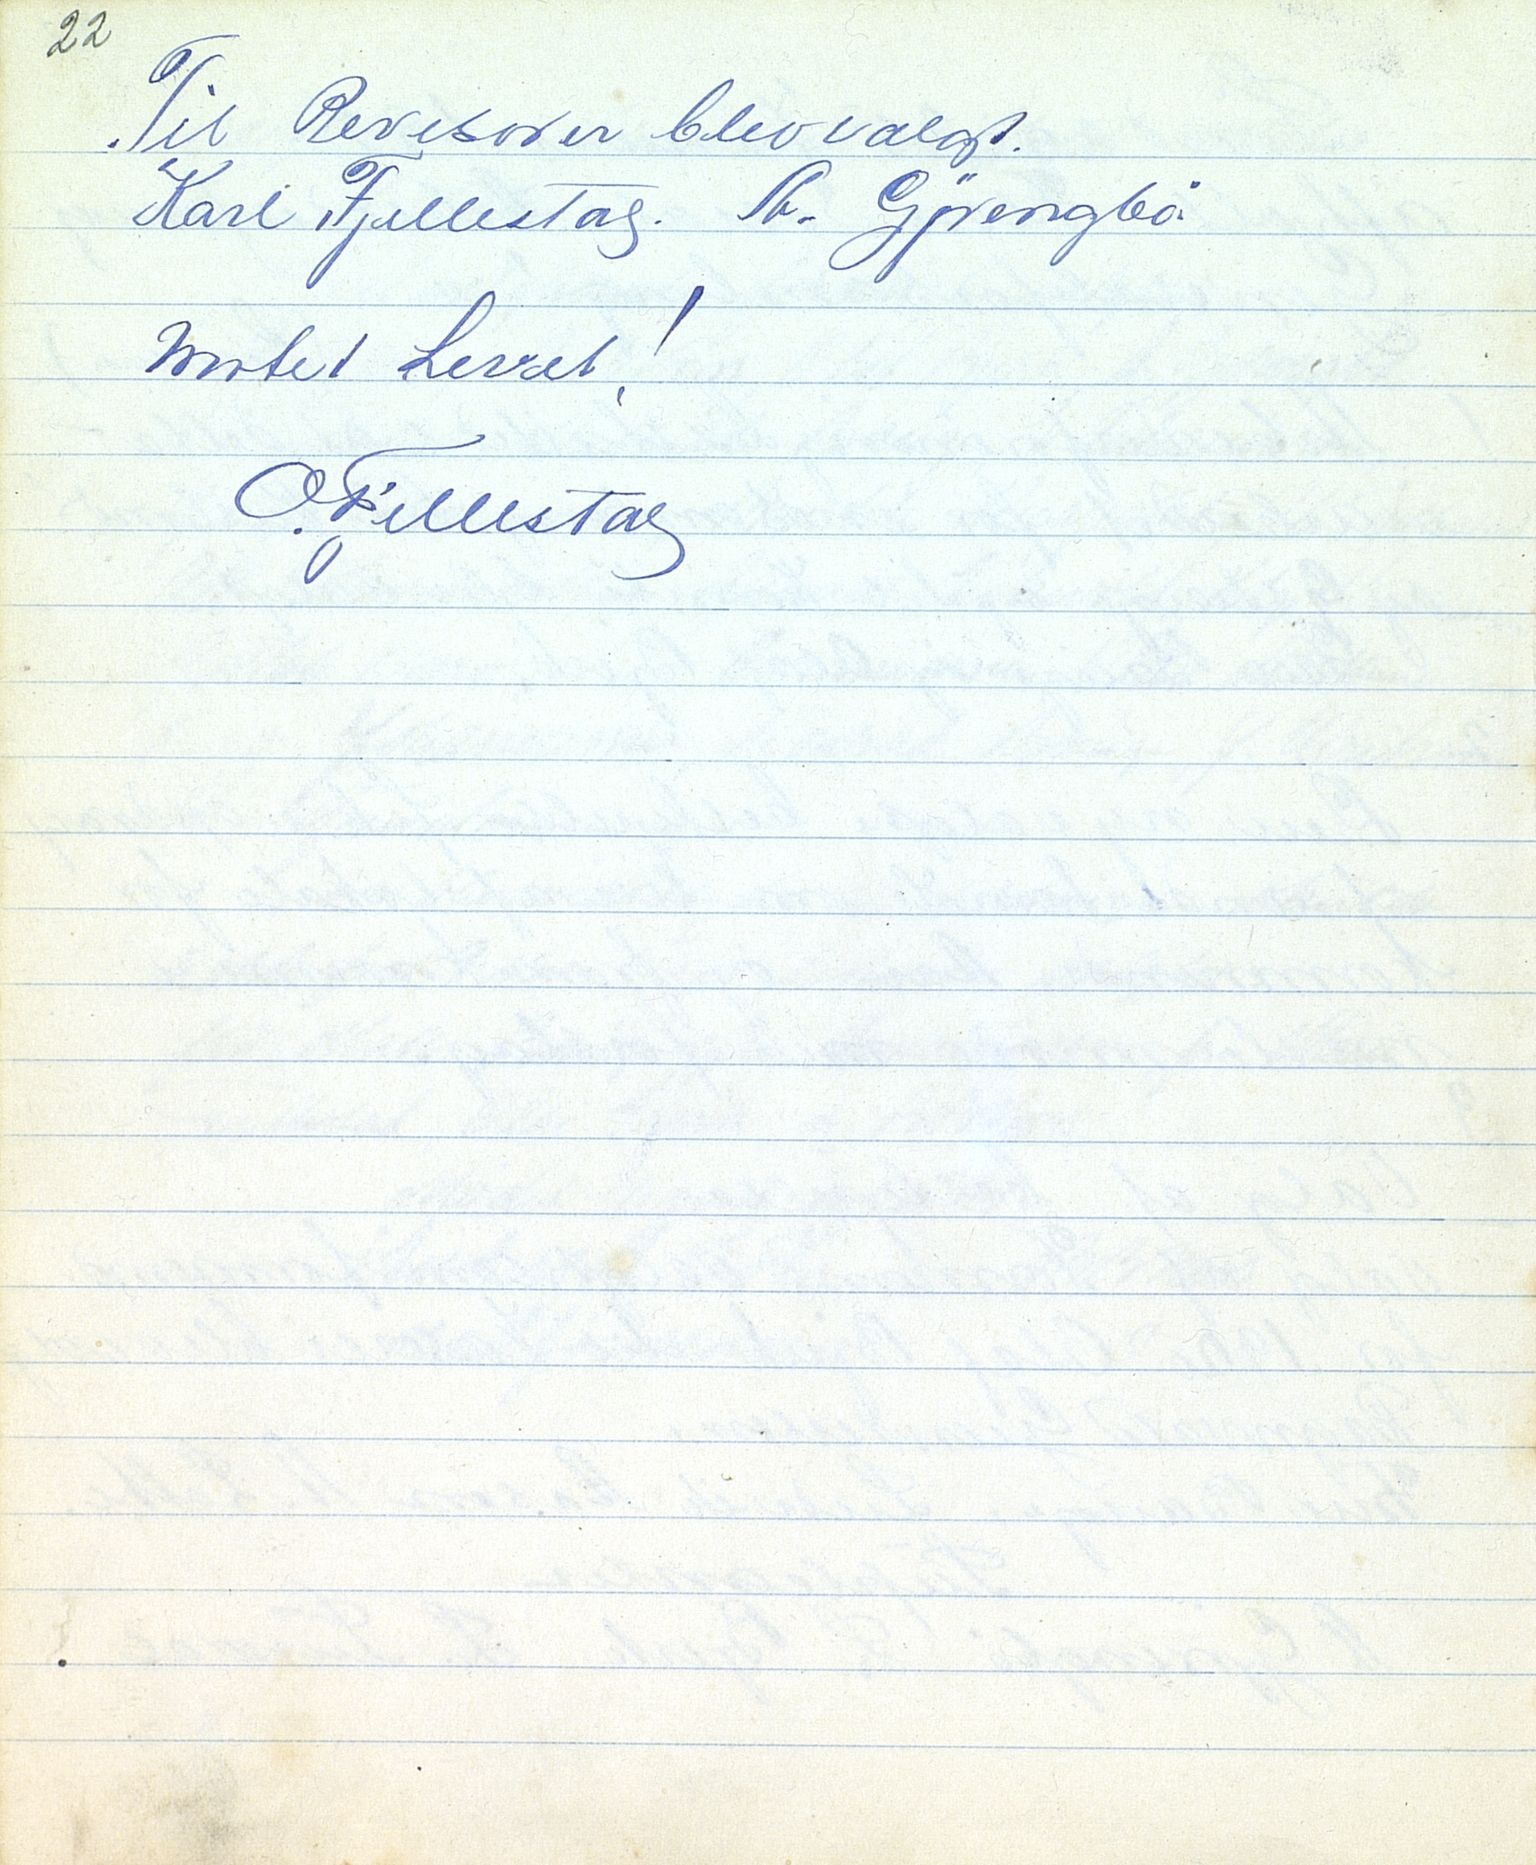 22
Til Revisorer blev valgt.
Karl Fjellestag. A. Gjörengbö
Motet hevet!
O. Fjellestag